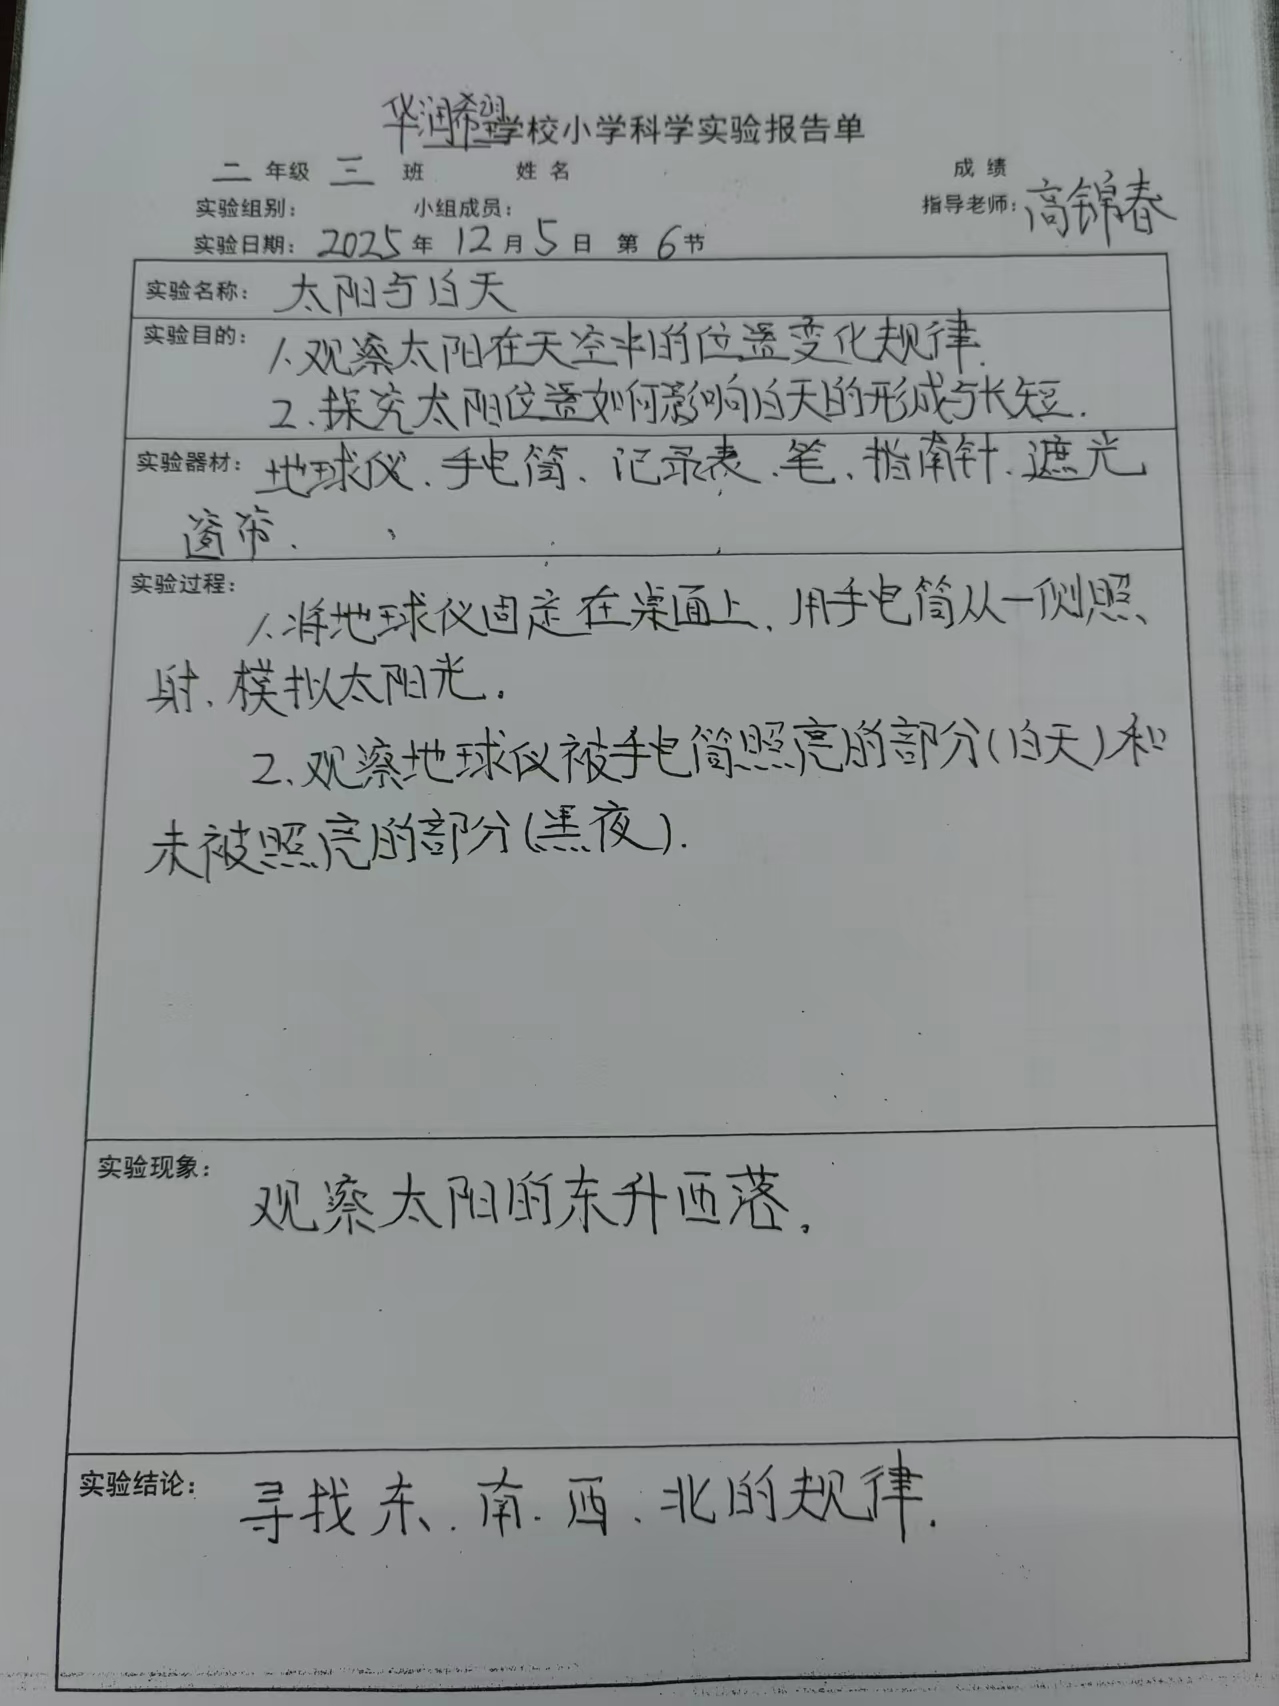 华润希望学校小学科学实验报告单
二年级 三 班 姓名 成绩
实验组别: 小组成员: 指导老师:高锦春
实验日期: 2025年 12月5日 第6节
实验名称: 太阳与白天
实验目的: 1.观察太阳在天空中的位置变化规律.
2.探究太阳位置如何影响白天的形成与长短.
实验器材: 地球仪、手电筒、记录表、笔、指南针、遮光
窗帘.
实验过程:
1.将地球仪固定在桌面上、用手电筒从一侧照
射、模拟太阳光.
2.观察地球仪被手电筒照亮的部分(白天)和
未被照亮的部分(黑夜).
实验现象: 观察太阳的东升西落.
实验结论: 寻找东.南.西.北的规律.